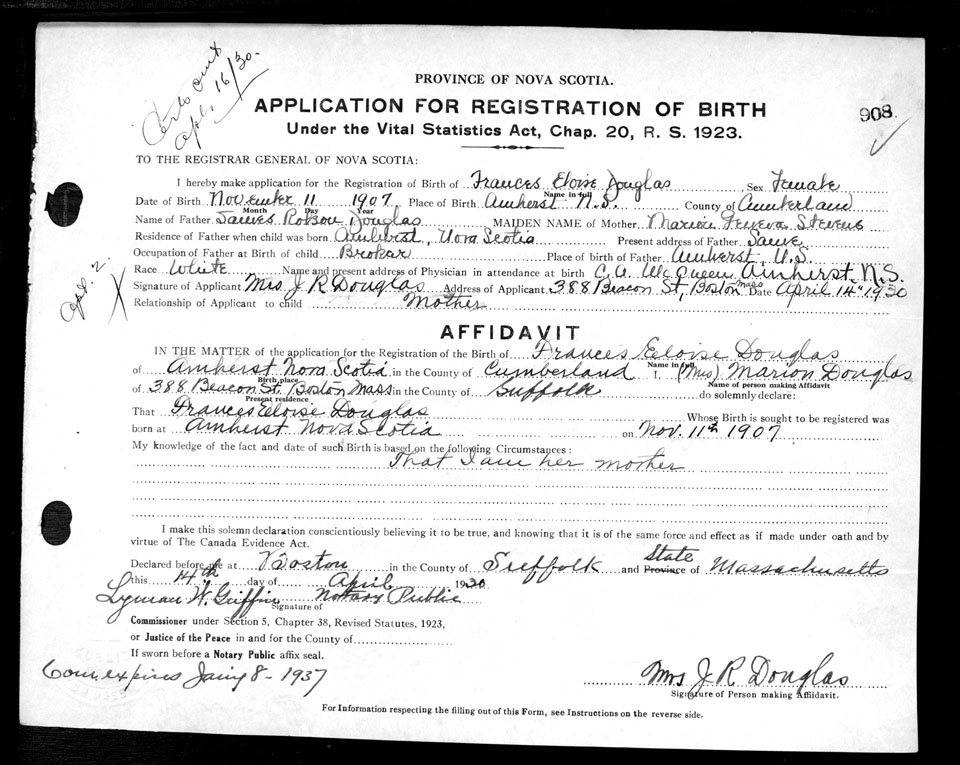 Certs out
Apl. 16/30.
PROVINCE OF NOVA SCOTIA.
APPLICATION FOR REGISTRATION OF BIRTH
908
Under the Vital Statistics Act, Chap. 20, R. S. 1923.
TO THE REGISTRAR GENERAL OF NOVA SCOTIA:
I hereby make application for the Registration of Birth of Frances Eloise Douglas Sex Female
Name in full
Date of Birth November 11 1907 Place of Birth Amherst N.S. County of Cumberland
Month Day Year
Name of Father James Robson Douglas MAIDEN NAME of Mother Marion Stevens
Residence of Father when child was born Amherst, Nova Scotia Present address of Father Same
Occupation of Father at Birth of child Broker Place of birth of Father Amherst, N.S.
Race White Name and present address of Physician in attendance at birth C. A. McQueen Amherst, N.S.
Signature of Applicant Mrs J R Douglas Address of Applicant 388 Beacon St, Boston Mass Date April 14" 1930
Relationship of Applicant to child Mother
Apl. 2.
X
AFFIDAVIT
IN THE MATTER of the application for the Registration of the Birth of Frances Eloise Douglas
Name in full
of Amherst Nova Scotia in the County of Cumberland I, (Mrs) Marion Douglas
Birth place Name of person making Affidavit
of 388 Beacon St. Boston Mass in the County of Suffolk do solemnly declare:
Present residence
That Frances Eloise Douglas Whose Birth is sought to be registered was
born at Amherst Nova Scotia on Nov. 11th 1907
My knowledge of the fact and date of such Birth is based on the following Circumstances:
That I am her mother
I make this solemn declaration conscientiously believing it to be true, and knowing that it is of the same force and effect as if made under oath and by
virtue of The Canada Evidence Act.
State
Declared before me at Boston in the County of Suffolk and Province of Massachusetts
this 14th day of April 1930
Lyman W. Griffin Notary Public
Signature of
Commissioner under Section 5, Chapter 38, Revised Statutes, 1923,
or Justice of the Peace in and for the County of
If sworn before a Notary Public affix seal.
Com. expires Jany 8 - 1937
Mrs J R Douglas
Signature of Person making Affidavit.
For Information respecting the filling out of this Form, see Instructions on the reverse side.